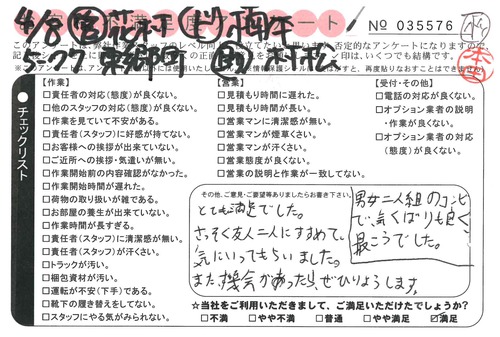 No 035576
このアンケートは、
否定的なアンケートになりますので、
チェックリスト
【作業】
□責任者の対応(態度)が良くない。
□他のスタッフの対応(態度)が良くない。
□作業を見ていて不安がある。
□責任者(スタッフ)に好感が持てない。
□お客様への挨拶が出来ていない。
□ご近所への挨拶・気遣いが無い。
□作業開始前の内容確認がなかった。
□作業開始時間が遅れた。
□荷物の取り扱いが雑である。
□お部屋の養生が出来ていない。
□作業時間が長すぎる。
□責任者(スタッフ)に清潔感が無い。
□責任者(スタッフ)が汗くさい。
□トラックが汚い。
□梱包資材が汚い。
□運転が不安(下手)である。
□靴下の履き替えをしてない。
□スタッフにやる気がみられない。
【営業】
□見積もり時間に遅れた。
□見積もり時間が長い。
□営業マンに清潔感が無い。
□営業マンが煙草くさい。
□営業マンが汗くさい。
□営業態度が良くない。
□営業の説明が不十分である。
□営業の説明が間違っていた。
【受付・その他】
□電話の対応が良くない。
□オプション業者の説明
・作業が良くない。
□オプション業者の対応
(態度)が良くない。
その他、ご意見・ご要望等ありましたらお書き下さい。
とても満足でした。
さっそく友人二人にすすめて、
気にいってもらいました。
また、機会があったら、ぜひりようします。
男女二人組のコンビ
で、気くばりも良く
最こうでした。
☆当社をご利用いただきまして、ご満足いただけたでしょうか?
□不満 □やや不満 □普通 □やや満足 ☑満足